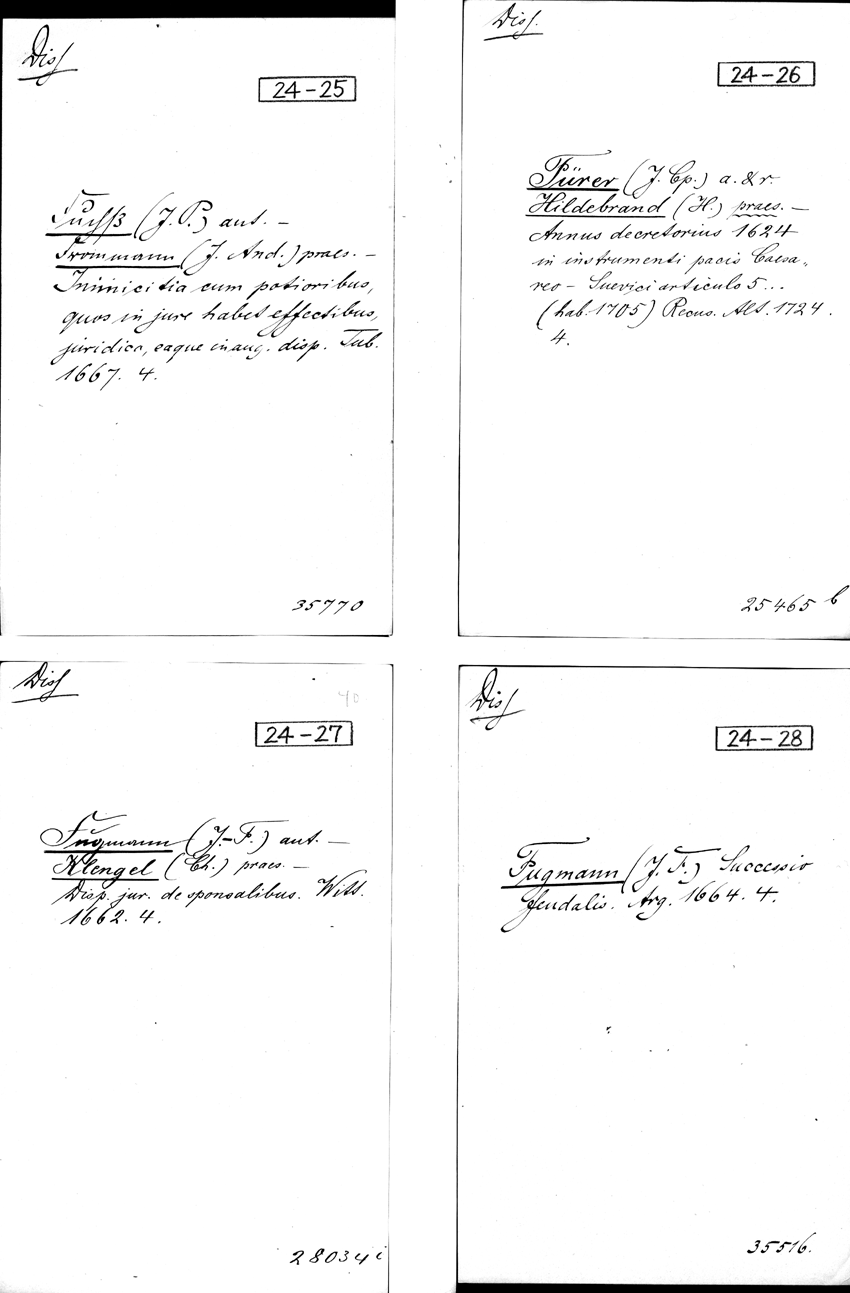 Diss
24-25
Fuchß (J. P.) aut. —
Frommann (J. And.) praes. —
Inimicitia cum potioribus,
quos in jure habet effectibus,
juridica, eaque inaug. disp. Tub.
1667. 4.
35770
Diss.
24-26
Fürer (J. Cp.) a. & r.
Hildebrand (H.) praes. —
Annus decretorius 1624
in instrumenti pacis Caesa„
reo - Suevici articulo 5...
(hab. 1705) Recus. Alt. 1724.
4.
25465 b
Diss
40
24-27
Fugmann (J.-F.) aut. —
Klengel (Ch.) praes. —
Disp. jur. de sponsalibus. Witt.
1662. 4.
28034 i
Diss
24-28
Fugmann (J. F.) Successio
feudalis. Arg. 1664. 4.
35516.